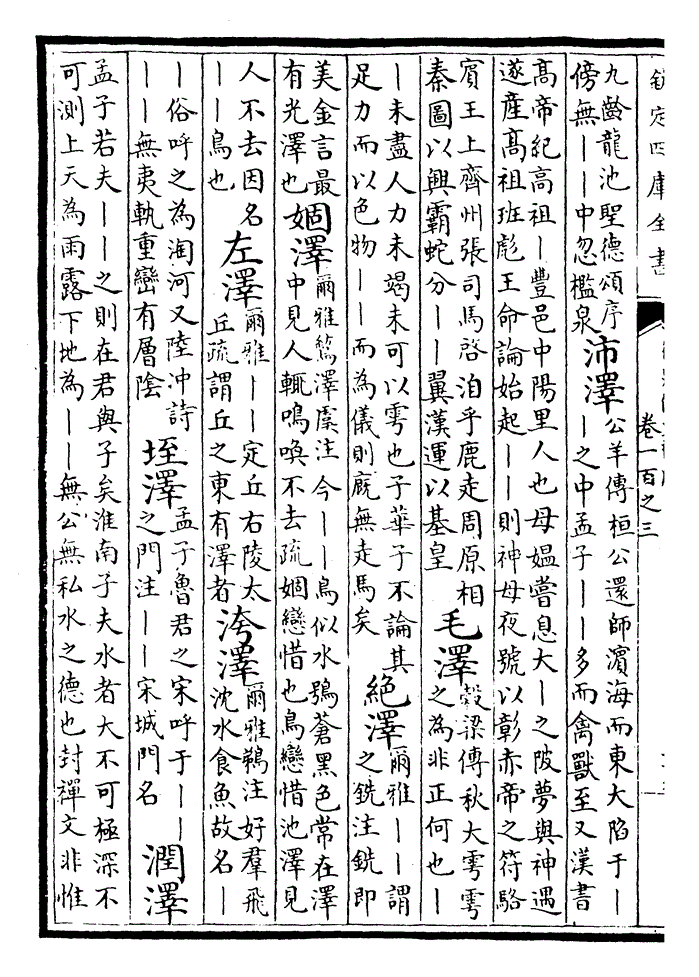 欽定四庫全書
卷一百之三
九齡龍池聖德頌序
傍無丨丨中忽檻泉
沛澤
公羊傳桓公還師濱海而東大陷于丨
丨之中孟子丨丨多而禽獸至又漢書
高帝紀高祖丨豐邑中陽里人也母媪嘗息大丨之陂夢與神遇
遂產髙祖班彪王命論始起丨丨則神母夜號以彰赤帝之符駱
賔王上齊州張司馬啓洎乎鹿走周原相
秦圖以興霸蛇分丨丨翼漢運以基皇
毛澤
穀梁傳秋大雩雩
之為非正何也丨
丨未盡人力未竭未可以雩也子華子不論其
足力而以色物丨丨而為儀則廐無走馬矣
絶澤
爾雅丨丨謂
之銑注銑即
美金言最
有光澤也
婟澤
爾雅鶭澤虞注今丨丨鳥似水鴞蒼黑色常在澤
中見人輒鳴喚不去疏婟戀惜也鳥戀惜池澤見
人不去因名
丨丨鳥也
左澤
爾雅丨丨定丘右陵太
丘疏謂丘之東有澤者
洿澤
爾雅鵜注好羣飛
沈水食魚故名丨
丨俗呼之為淘河又陸沖詩
丨丨無夷軌重巒有層陰
垤澤
孟子魯君之宋呼于丨丨
之門注丨丨宋城門名
潤澤
孟子若夫丨丨之則在君與子矣淮南子夫水者大不可極深不
可測上天為雨露下地為丨丨無公無私水之德也封禪文非惟